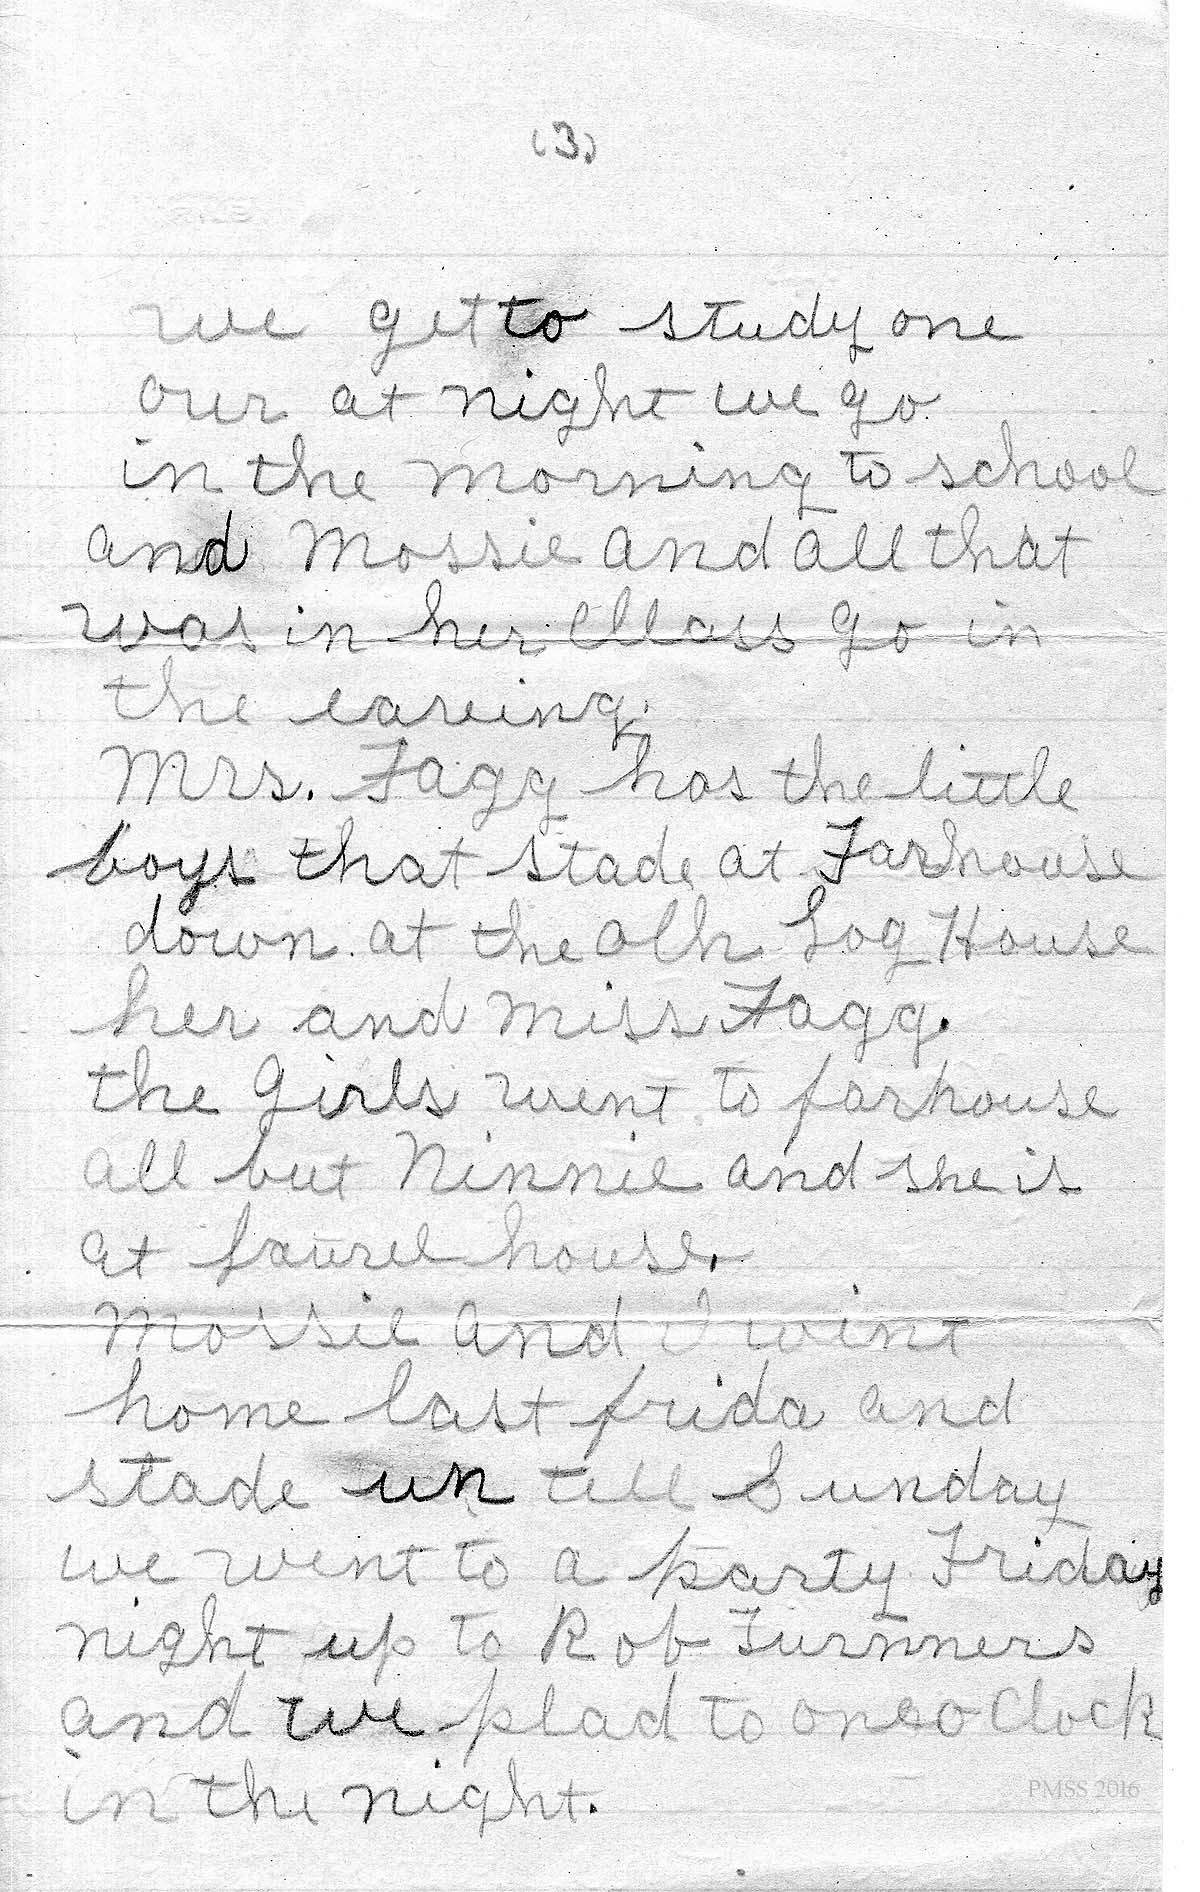 (3)
we get to study one
our at night we go
in the morning to school
and Mossie and all that
was in her Class go in
the eareing.
Mrs. Fagg has the little
boys that stade at Farhouse
down at the olh Log House
her and miss Fagg.
the Girls went to farhouse
all but Ninnie and she is
at Laurel house.
Mossie and I wint
home last frida and
stade un till Sunday
we went to a party Friday
night up to Rob Turnners
and we plad to one o Clock
in the night.
PMSS 2016